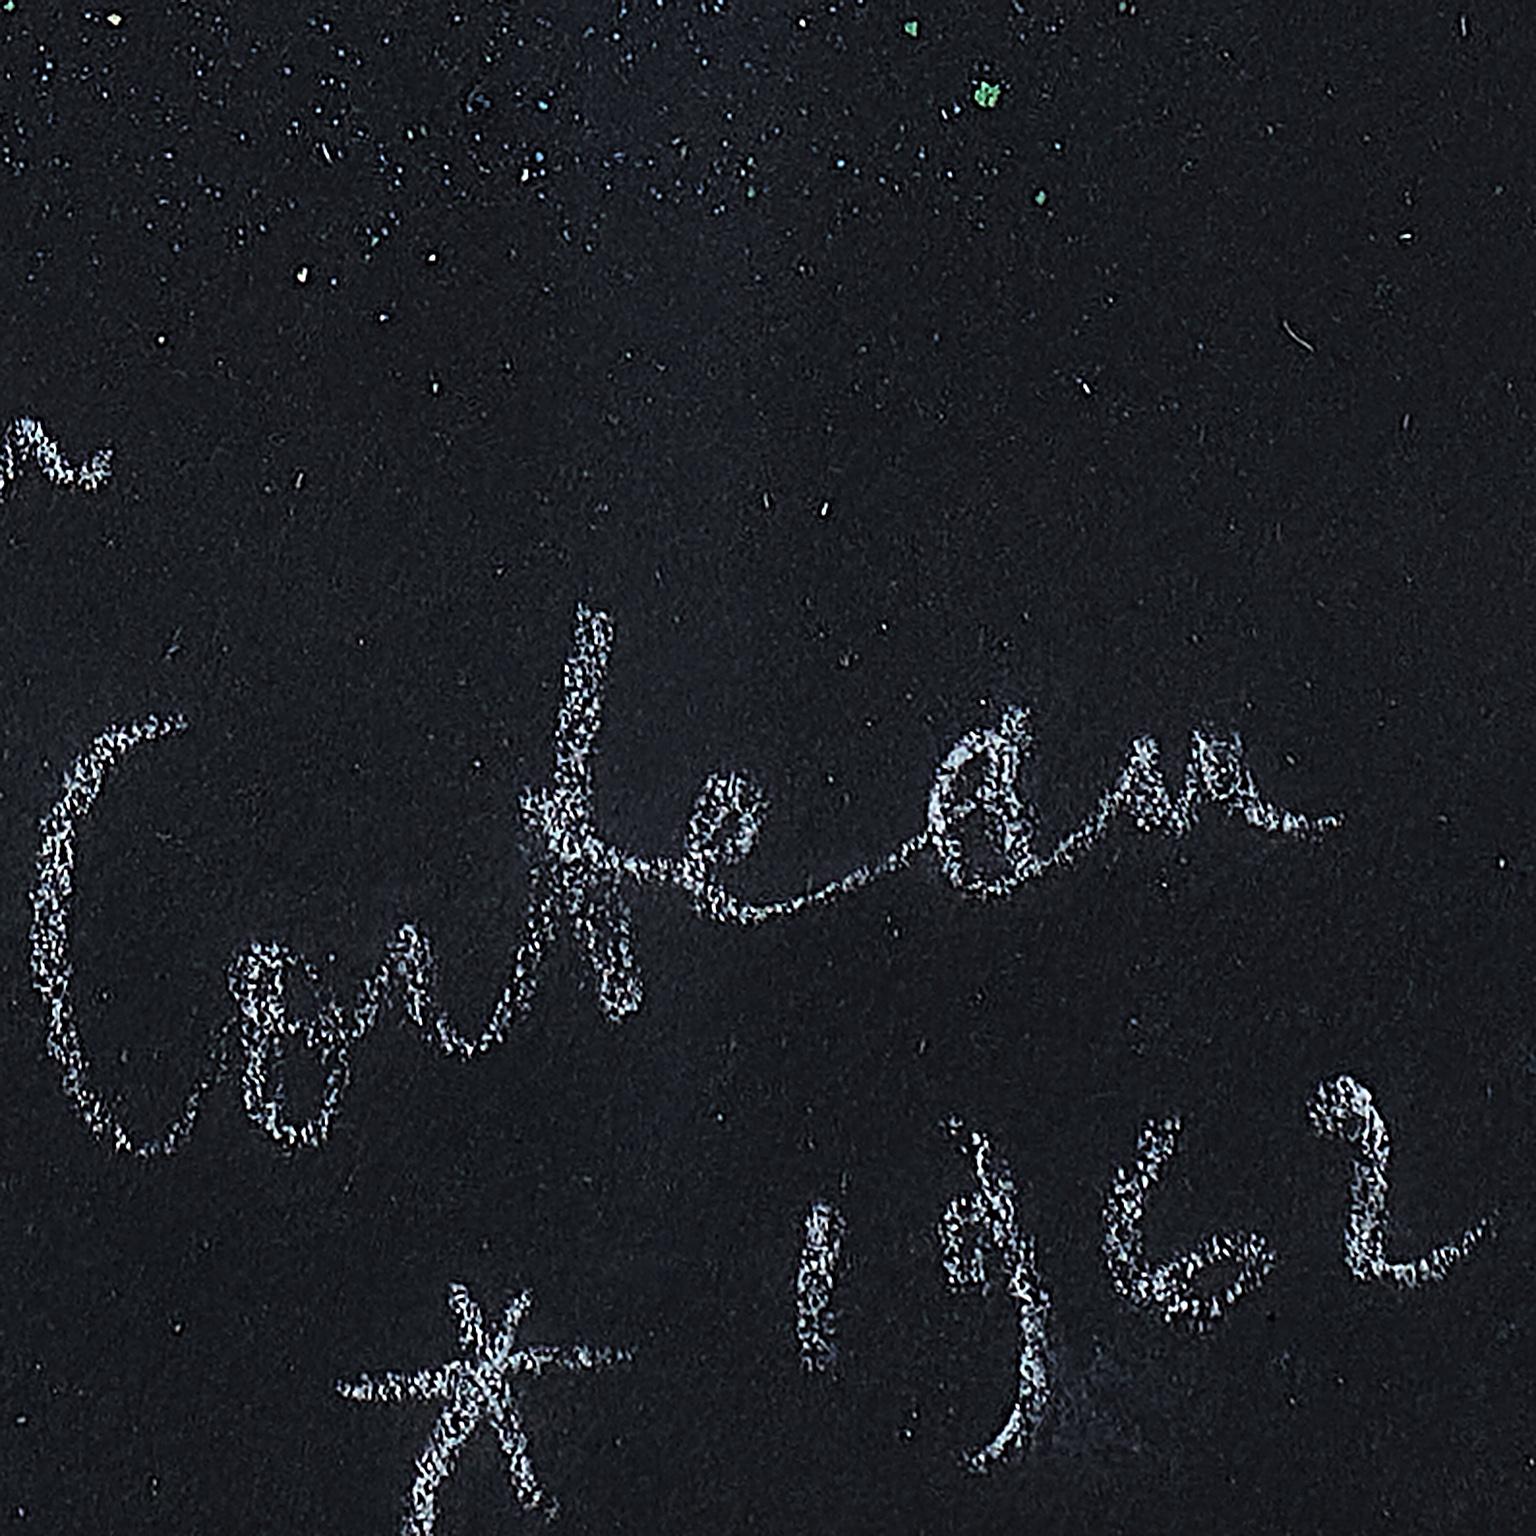 Cocteau
* 1962